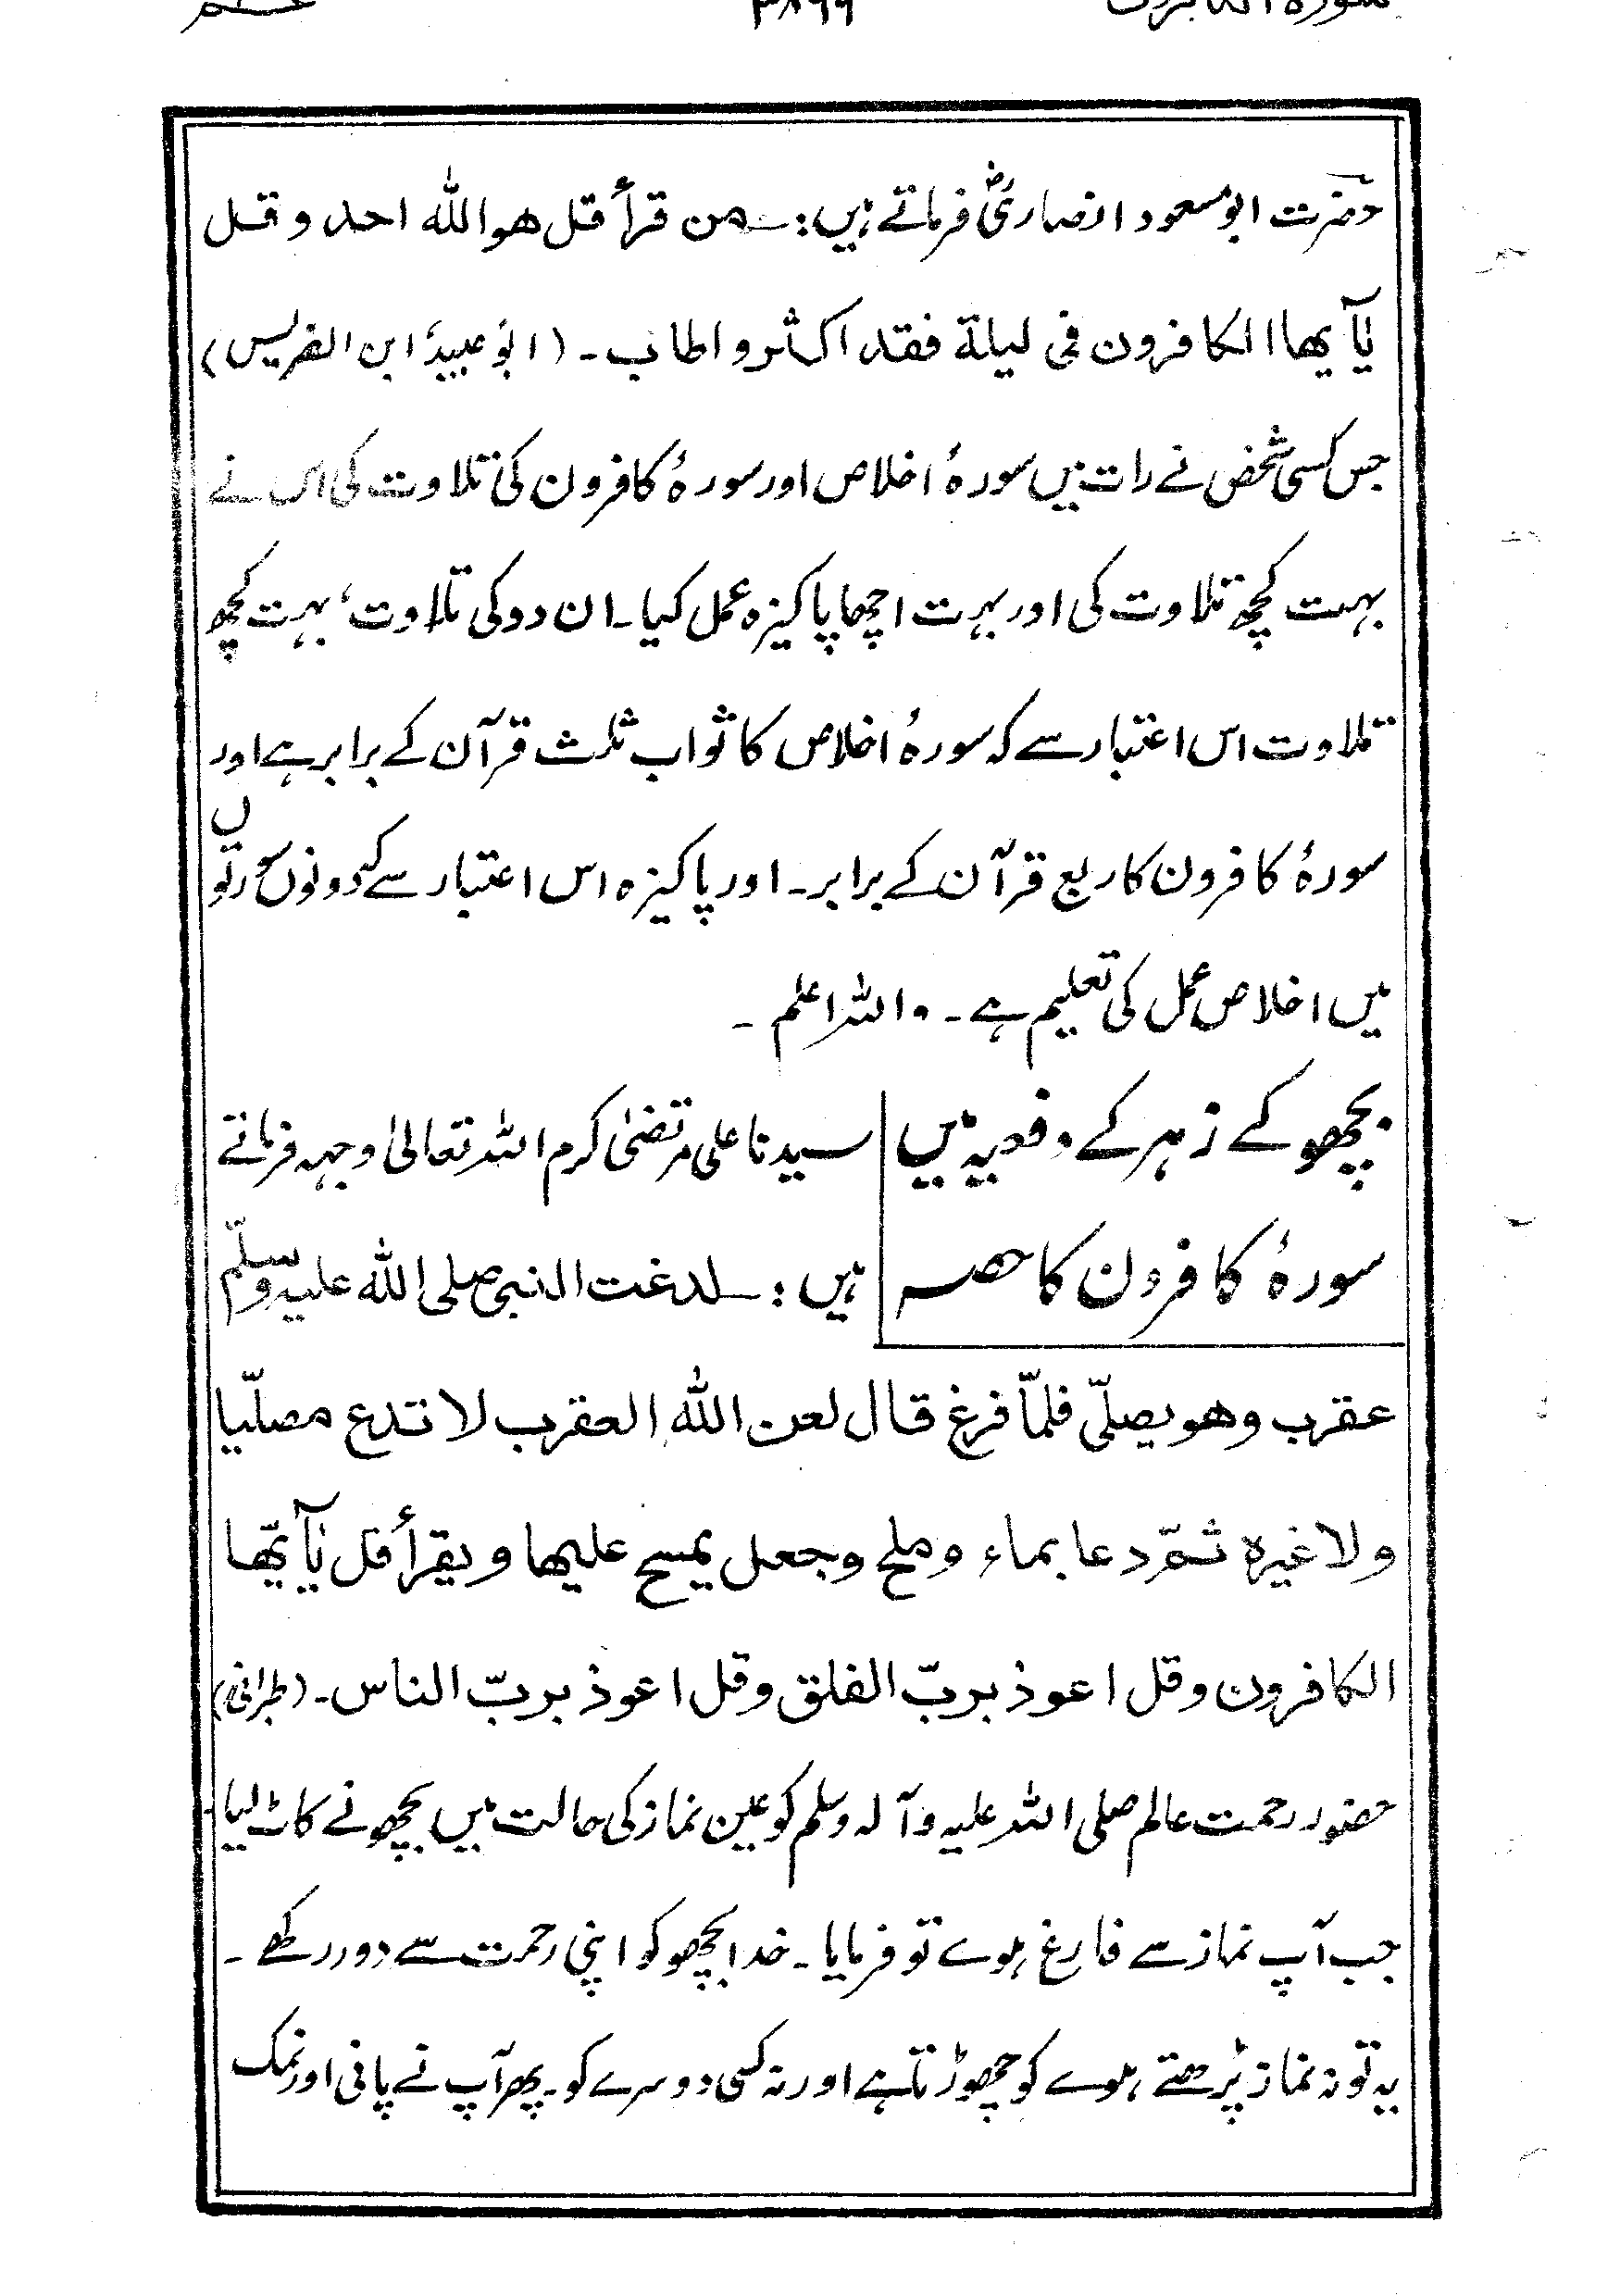 حضرت ابو مسعود انصاریؓ فرماتے ہیں: ــ من قرأ قل هو الله احد و قل
یٰٓا یها الکافرون فی لیلة فقد اکثر و اطاب ـ (ابو عبید، ابن الضریس)
جس کسی شخص نے رات میں سورۂ اخلاص اور سورۂ کافرون کی تلاوت کی اس نے
بہت کچھ تلاوت کی اور بہت اچھا پاکیزہ عمل کیا ـ ان دو کی تلاوت، بہت کچھ
تلاوت اس اعتبار سے کہ سورۂ اخلاص کا ثواب ثلث قرآن کے برابر ہے اور
سورۂ کافرون کا ربع قرآن کے برابر ـ اور پاکیزہ اس اعتبار سے کہ دونوں سورتوں
میں اخلاص عمل کی تعلیم ہے ـ واللہ اعلم ـ
بچھو کے زہر کے دفعیہ میں
سورۂ کافرون کا حصہ
سیدنا علی مرتضیٰ کرم اللہ تعالیٰ وجہہ فرماتے
ہیں: ــ لدغت النبی صلی الله علیه وسلّم
عقرب وهو یصلّی فلمّا فرغ قال لعن الله العقرب لا تدع مصلّیا
ولا غیره ثمّ دعا بماء وملح وجعل یمسح علیها ویقرأ قل یٰٓا یّها
الکافرون وقل اعوذ بربّ الفلق وقل اعوذ بربّ الناس ـ (طبرانی)
حضور رحمت عالم صلی اللہ علیہ وآلہ وسلم کو عین نماز کی حالت میں بچھو نے کاٹ لیا ـ
جب آپ نماز سے فارغ ہوے تو فرمایا ـ خدا بچھو کو اپنی رحمت سے دور رکھے ـ
یہ تو نہ نماز پڑھتے ہوے کو چھوڑتا ہے اور نہ کسی دوسرے کو ـ پھر آپ نے پانی اور نمک